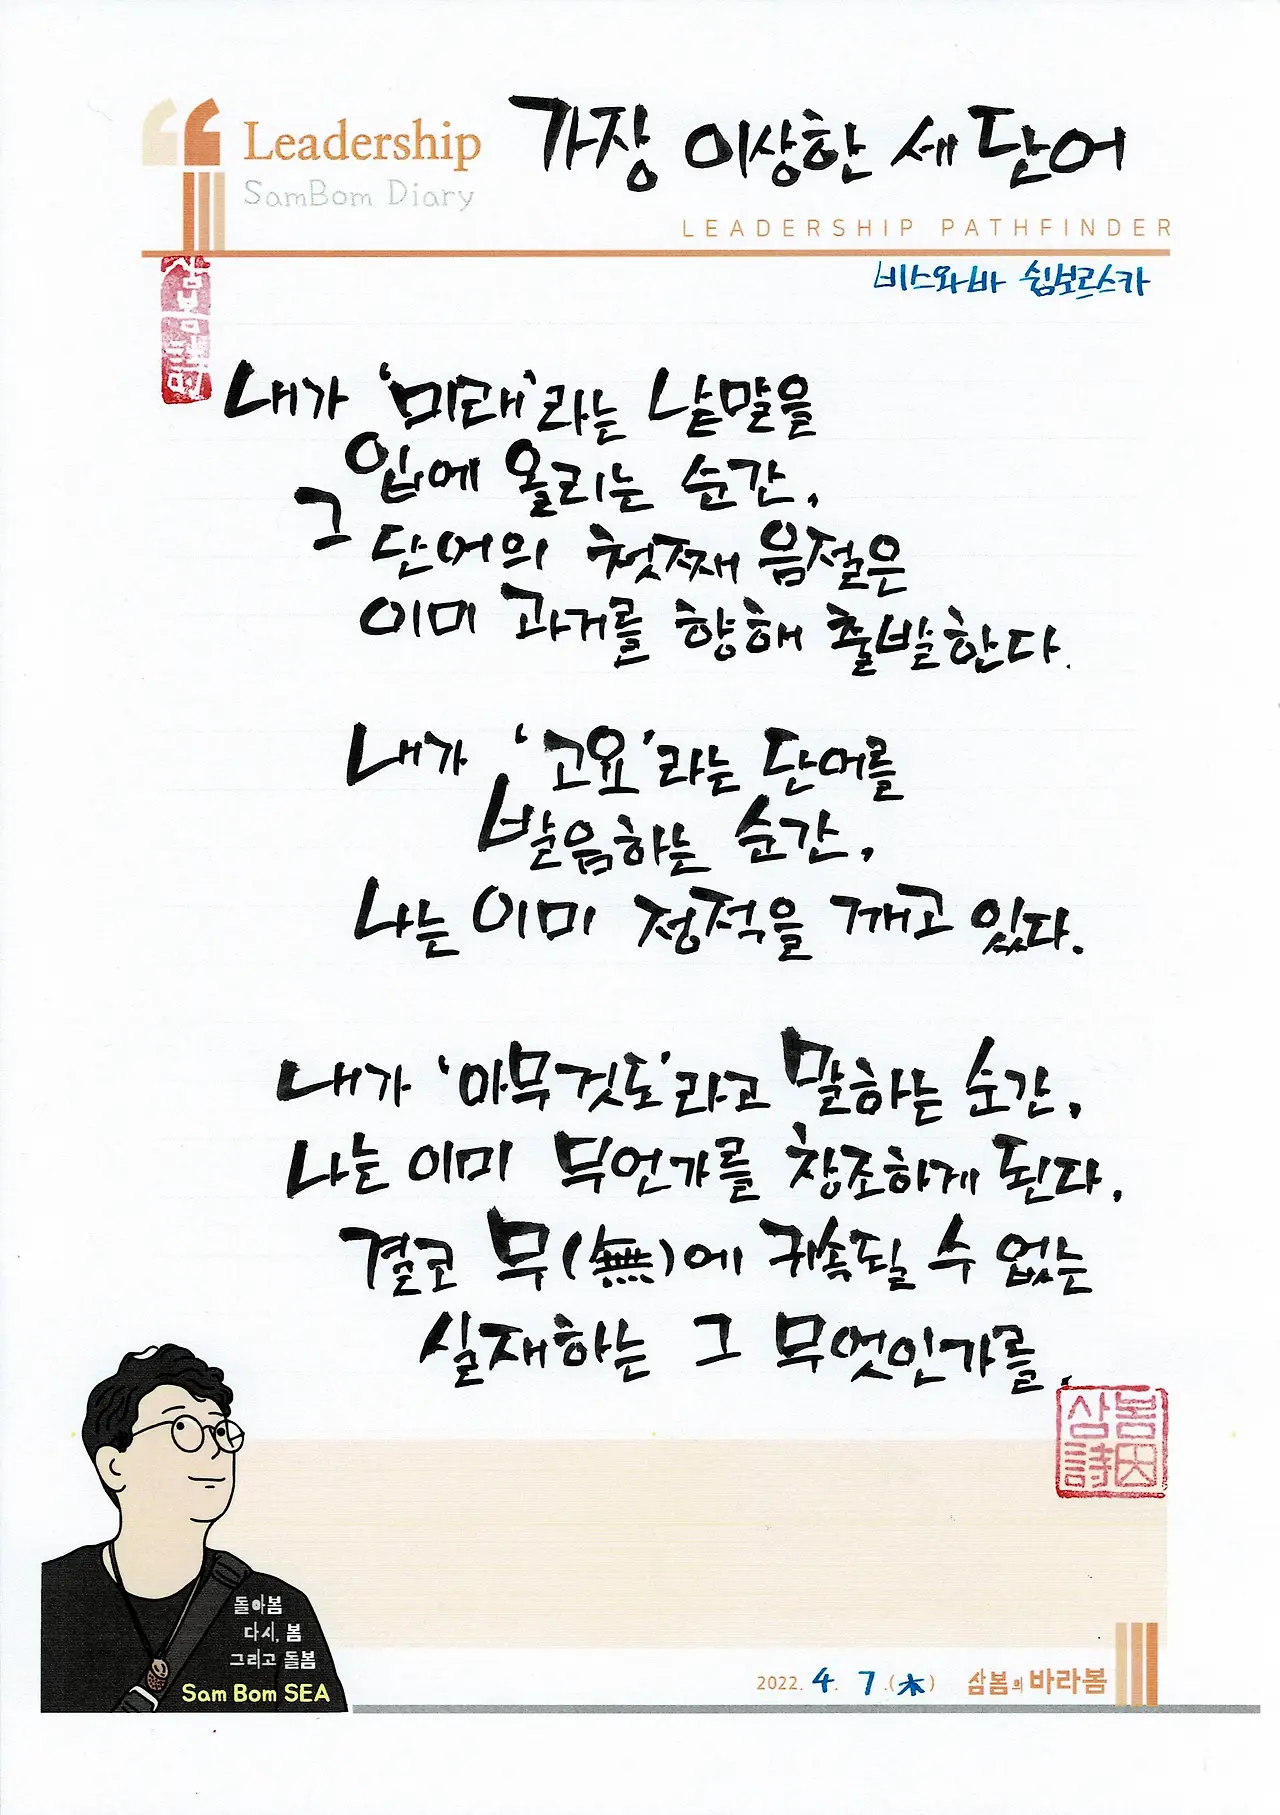 Leadership
SamBom Diary
가장 이상한 세 단어
LEADERSHIP PATHFINDER
비스와바 쉼보르스카
내가 '미래'라는 낱말을
입에 올리는 순간,
그 단어의 첫째 음절은
이미 과거를 향해 출발한다.
내가 '고요'라는 단어를
발음하는 순간,
나는 이미 정적을 깨고 있다.
내가 '아무것도'라고 말하는 순간,
나는 이미 무언가를 창조하게 된다.
결코 무(無)에 귀속될 수 없는
실재하는 그 무엇인가를.
삼봄
詩因
돌아봄
다시, 봄
그리고 돌봄
Sam Bom SEA
2022. 4. 7.(木)
삼봄의 바라봄